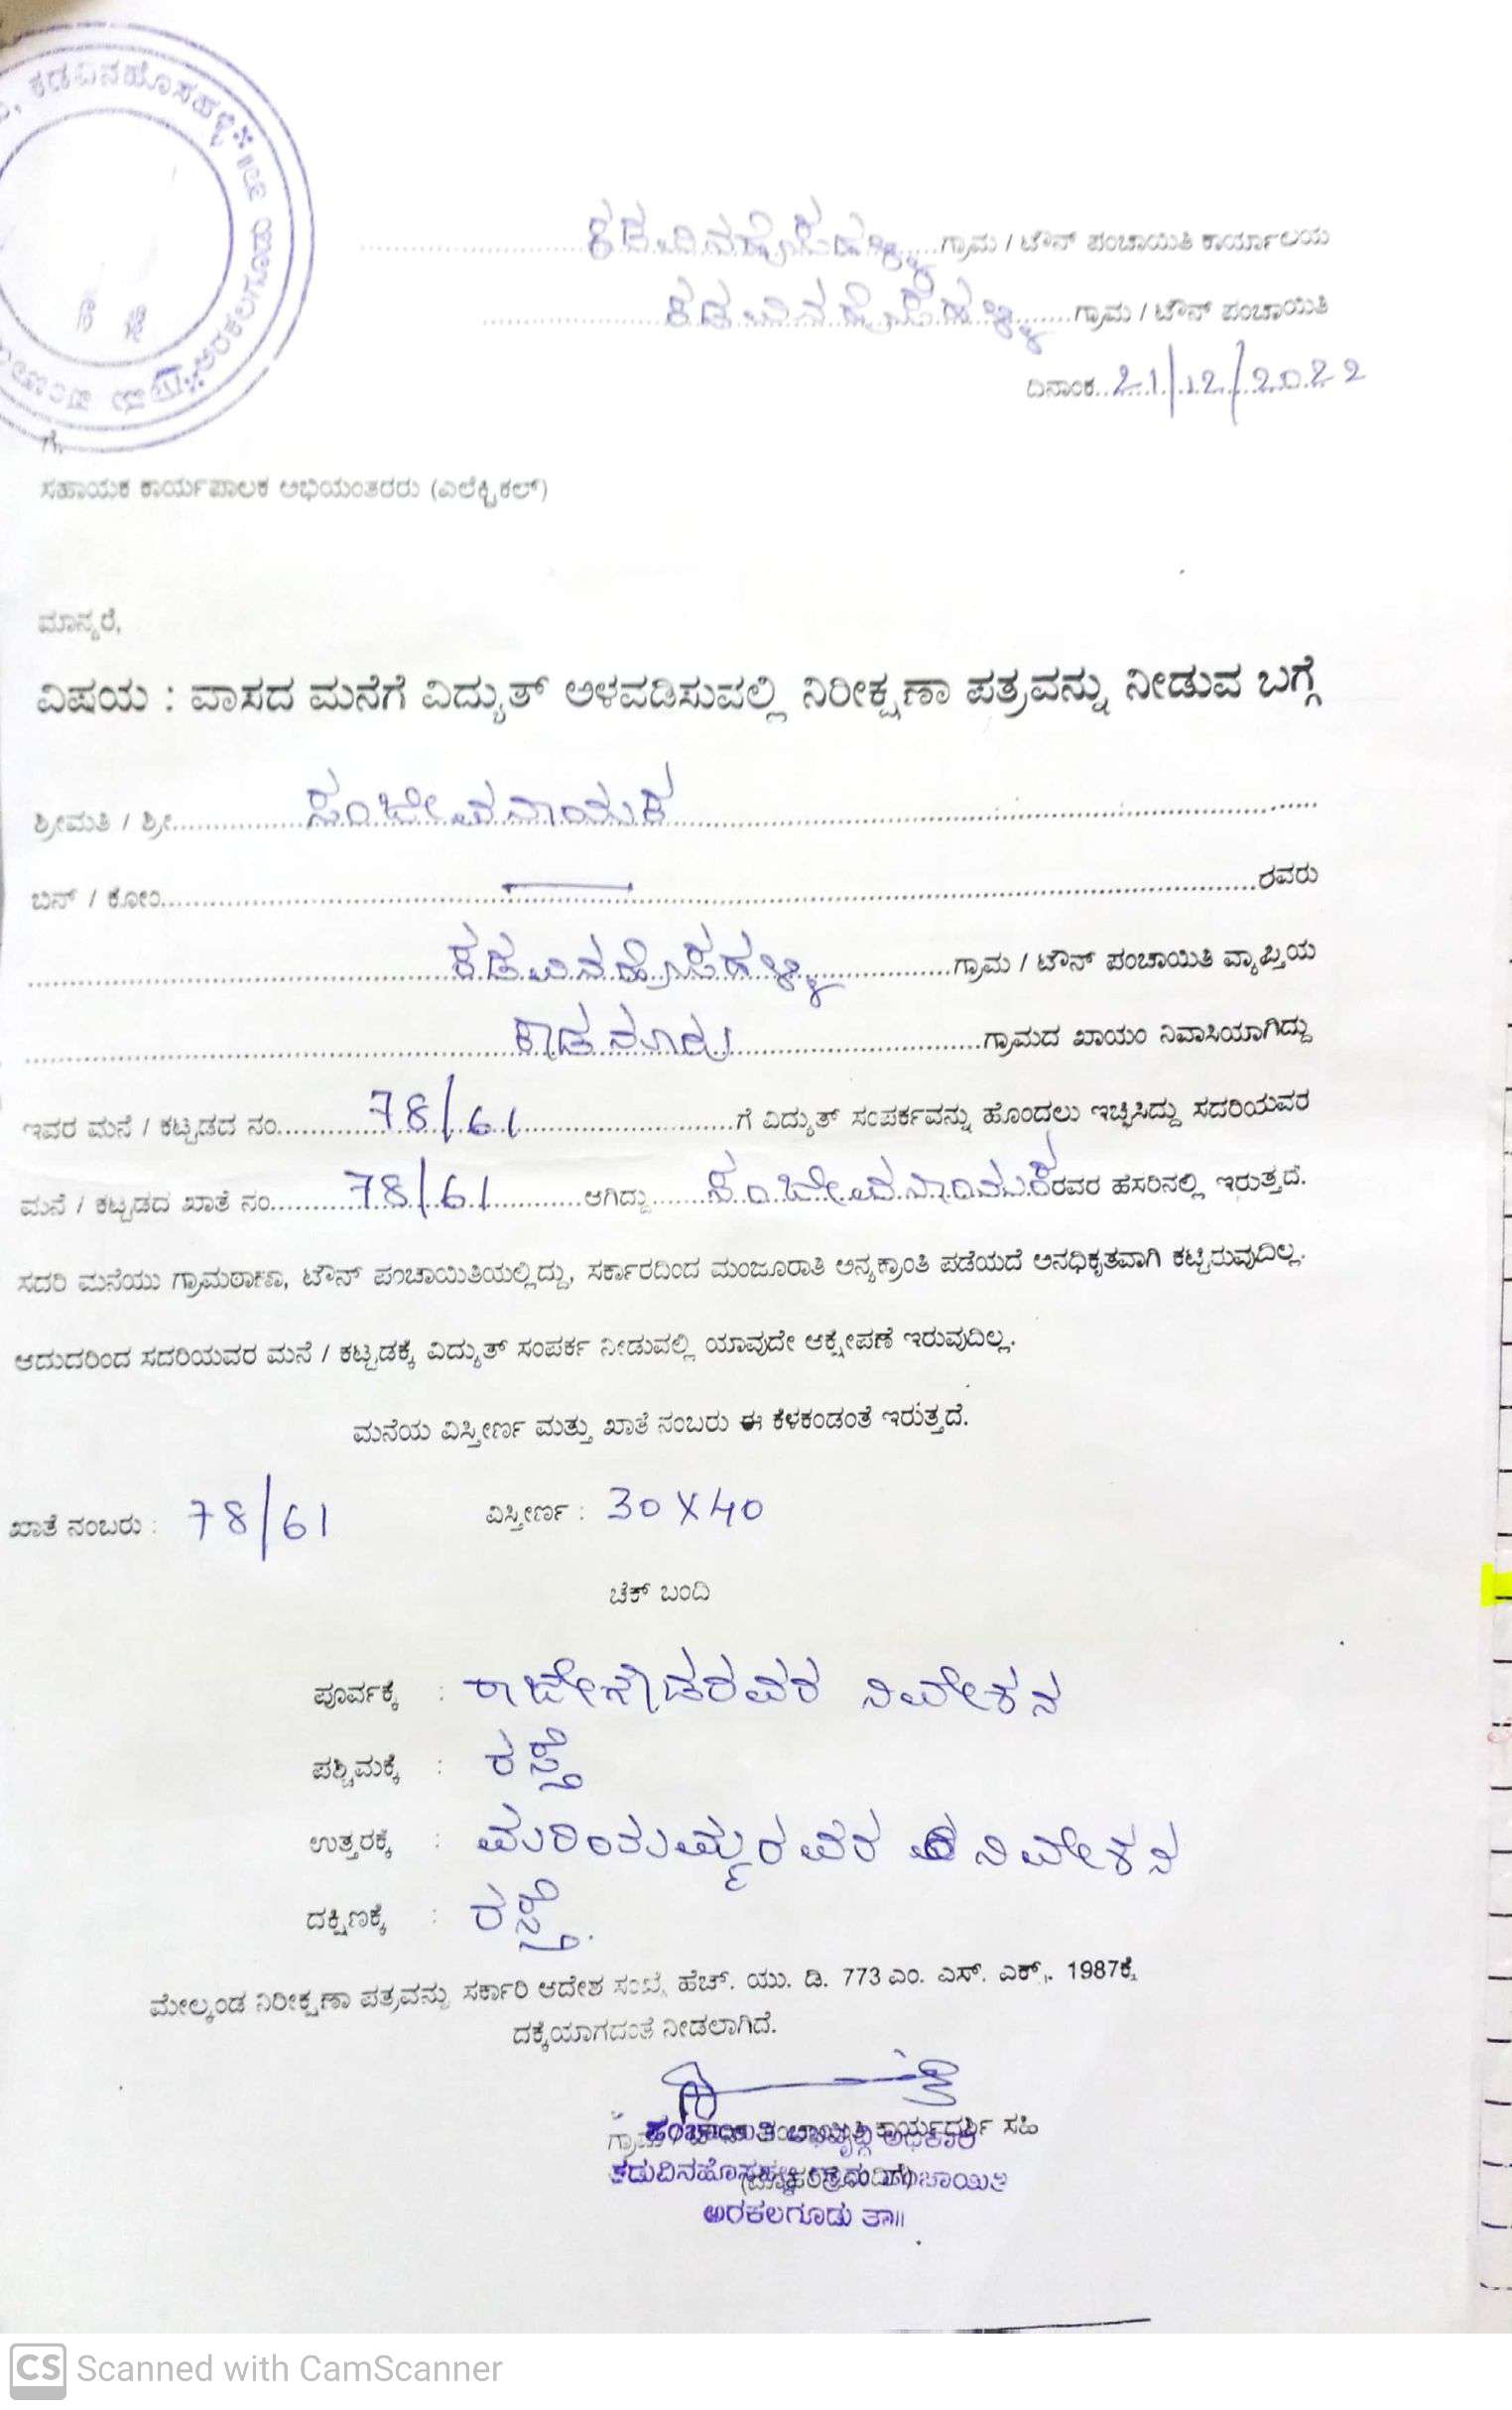 ಕಡವಿನಹೊಸಹಳ್ಳಿ
ಅರಕಲಗೂಡು
ಕಡವಿನಹೊಸಹಳ್ಳಿ ಗ್ರಾಮ / ಟೌನ್ ಪಂಚಾಯಿತಿ ಕಾರ್ಯಾಲಯ
ಕಡವಿನಹೊಸಹಳ್ಳಿ ಗ್ರಾಮ / ಟೌನ್ ಪಂಚಾಯಿತಿ
ದಿನಾಂಕ..21/12/2022
ಗೆ,
ಸಹಾಯಕ ಕಾರ್ಯಪಾಲಕ ಅಭಿಯಂತರರು (ಎಲೆಕ್ಟ್ರಿಕಲ್)
ಮಾನ್ಯರೆ,
ವಿಷಯ : ವಾಸದ ಮನೆಗೆ ವಿದ್ಯುತ್ ಅಳವಡಿಸುವಲ್ಲಿ ನಿರೀಕ್ಷಣಾ ಪತ್ರವನ್ನು ನೀಡುವ ಬಗ್ಗೆ
ಶ್ರೀಮತಿ / ಶ್ರೀ ಸಂಜೀವನಾಯಕ
ಬಿನ್ / ಕೋಂ ರವರು
ಕಡವಿನಹೊಸಹಳ್ಳಿ ಗ್ರಾಮ / ಟೌನ್ ಪಂಚಾಯಿತಿ ವ್ಯಾಪ್ತಿಯ
ಕಾಡನೂರು ಗ್ರಾಮದ ಖಾಯಂ ನಿವಾಸಿಯಾಗಿದ್ದು
ಇವರ ಮನೆ / ಕಟ್ಟಡದ ನಂ. 78/61 ಗೆ ವಿದ್ಯುತ್ ಸಂಪರ್ಕವನ್ನು ಹೊಂದಲು ಇಚ್ಛಿಸಿದ್ದು ಸದರಿಯವರ
ಮನೆ / ಕಟ್ಟಡದ ಖಾತೆ ನಂ. 78/61 ಆಗಿದ್ದು ಸಂಜೀವನಾಯಕ ರವರ ಹೆಸರಿನಲ್ಲಿ ಇರುತ್ತದೆ.
ಸದರಿ ಮನೆಯು ಗ್ರಾಮಠಾಣಾ, ಟೌನ್ ಪಂಚಾಯಿತಿಯಲ್ಲಿದ್ದು, ಸರ್ಕಾರದಿಂದ ಮಂಜೂರಾತಿ ಅನ್ಯಕ್ರಾಂತಿ ಪಡೆಯದೆ ಅನಧಿಕೃತವಾಗಿ ಕಟ್ಟಿರುವುದಿಲ್ಲ.
ಆದುದರಿಂದ ಸದರಿಯವರ ಮನೆ / ಕಟ್ಟಡಕ್ಕೆ ವಿದ್ಯುತ್ ಸಂಪರ್ಕ ನೀಡುವಲ್ಲಿ ಯಾವುದೇ ಆಕ್ಷೇಪಣೆ ಇರುವುದಿಲ್ಲ.
ಮನೆಯ ವಿಸ್ತೀರ್ಣ ಮತ್ತು ಖಾತೆ ನಂಬರು ಈ ಕೆಳಕಂಡಂತೆ ಇರುತ್ತದೆ.
ಖಾತೆ ನಂಬರು : 78/61 ವಿಸ್ತೀರ್ಣ : 30 X 40
ಚೆಕ್ ಬಂದಿ
ಪೂರ್ವಕ್ಕೆ : ರಾಜೇಗೌಡರವರ ನಿವೇಶನ
ಪಶ್ಚಿಮಕ್ಕೆ : ರಸ್ತೆ
ಉತ್ತರಕ್ಕೆ : ಮರಿಯಮ್ಮರವರ ನಿವೇಶನ
ದಕ್ಷಿಣಕ್ಕೆ : ರಸ್ತೆ.
ಮೇಲ್ಕಂಡ ನಿರೀಕ್ಷಣಾ ಪತ್ರವನ್ನು ಸರ್ಕಾರಿ ಆದೇಶ ಸಂಖ್ಯೆ ಹೆಚ್. ಯು. ಡಿ. 773 ಎಂ. ಎಸ್. ಎಕ್., 1987ಕ್ಕೆ
ದಕ್ಕೆಯಾಗದಂತೆ ನೀಡಲಾಗಿದೆ.
ಕಾರ್ಯದರ್ಶಿ ಸಹಿ
ಅರಕಲಗೂಡು ತಾ||
CS Scanned with CamScanner